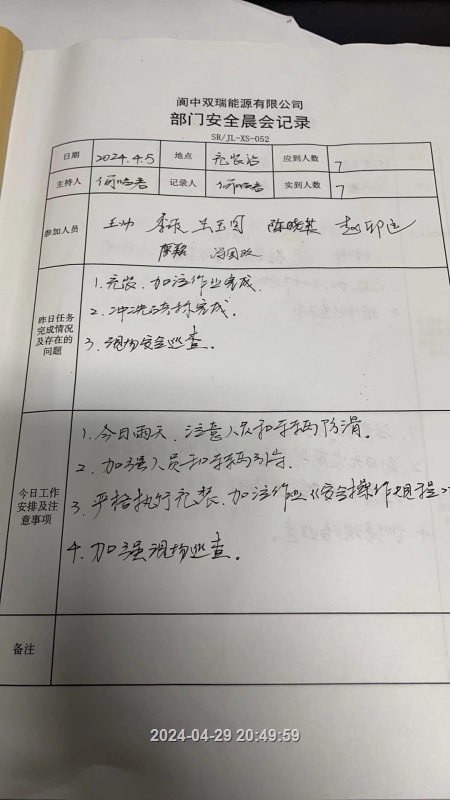 阆中双瑞能源有限公司
部门安全晨会记录
SR/JL-XS-052
日期 2024.4.5 地点 充装站 应到人数 7
主持人 记录人 实到人数 7
参加人员 王帅 李琼 陈晓英
昨日任务完成情况及存在的问题
1.充装、加注作业完成.
2.冲洗地秤完成.
3.现场安全巡查。
今日工作安排及注意事项
1.今日雨天、注意人员和车辆防滑。
2.加强人员和车辆引导.
3.严格执行充装、加注作业《安全操作规程》
4.加强现场巡查。
备注
2024-04-29 20:49:59